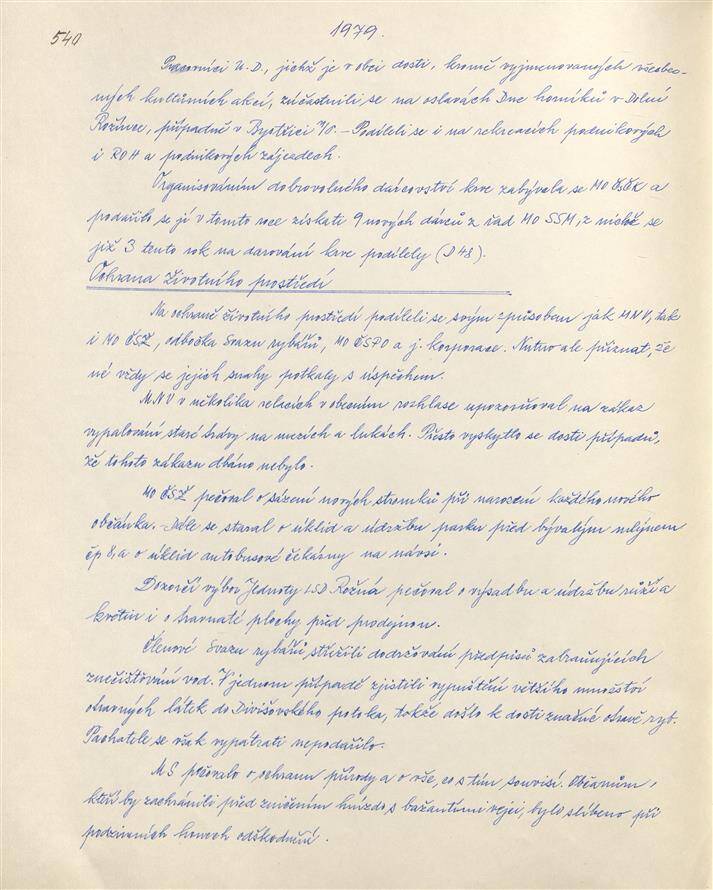 540
1979.
Pracovníci U.D., jichž je v obci dosti, kromě vyjmenovaných všeobec-
ných kulturních akcí, zúčastnili se na oslavách Dne horníků v Dolní
Rožínce, případně v Bystřici n/P. – Podíleli se i na rekreacích podnikových
i ROH a podnikových zájezdech.
Organisováním dobrovolného dárcovství krve zabývala se MO ČSČK a
podařilo se jí v tomto roce získati 9 nových dárců z řad MO SSM, z nichž se
již 3 tento rok na darování krve podílely (D 48).
Ochrana životního prostředí
Na ochraně životního prostředí podíleli se svým způsobem jak MNV, tak
i MO ČSŽ, odbočka Svazu rybářů, MO ČSPO a j. korporace. Nutno ale přiznat, že
né vždy se jejich snahy potkaly s úspěchem.
MNV v několika relacích v obecním rozhlase upozorňoval na zákaz
vypalování staré trávy na mezích a lukách. Přesto vyskytlo se dosti případů,
že tohoto zákazu dbáno nebylo.
MO ČSŽ pečoval o sázení nových stromků při narození každého nového
občánka. Dále se staral o úklid a údržbu parku před bývalým mlýnem
čp 8, a o úklid autobusové čekárny na návsi.
Dozorčí výbor Jednoty LSD Rožná pečoval o výsadbu a údržbu růží a
květin i o travnaté plochy před prodejnou.
Členové Svazu rybářů střežili dodržování předpisů zabraňujících
znečišťování vod. V jednom případě zjistili vypuštění většího množství
otravných látek do Divišovského potoka, takže došlo k dosti značné otravě ryb.
Pachatele se však vypátrati nepodařilo.
MS pečovalo o ochranu přírody a o vše, co s tím souvisí. Občanům,
kteří by zachránili před zničením hnízdo s bažantími vejci, bylo slíbeno při
podzimních honech odškodnění.